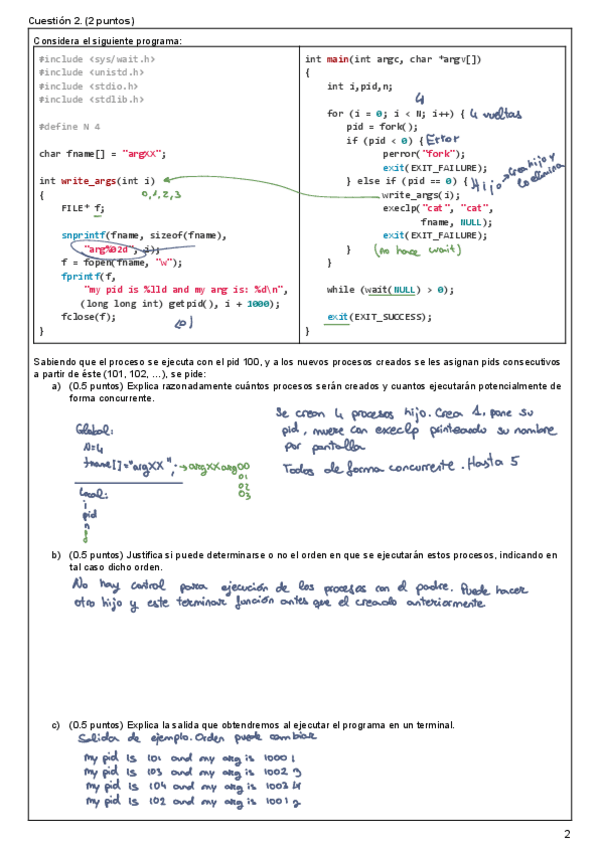 Cuestión 2. (2 puntos)
Considera el siguiente programa:
#include <sys/wait.h>
#include <unistd.h>
#include <stdio.h>
#include <stdlib.h>
#define N 4
char fname[] = "argXX";
int write_args(int i)
0,1,2,3
{
FILE* f;
snprintf(fname, sizeof(fname),
"arg%02d", i);
f = fopen(fname, "w");
fprintf(f,
"my pid is %lld and my arg is: %d\n",
(long long int) getpid(), i + 1000);
fclose(f);
}
int main(int argc, char *argv[])
{
int i,pid,n;
4
for (i = 0; i < N; i++) { 4 vueltas
pid = fork();
if (pid < 0) { Error
perror("fork");
exit(EXIT_FAILURE);
} else if (pid == 0) { Hijo → Crea hijo y lo elimina
write_args(i);
execlp("cat", "cat",
fname, NULL);
exit(EXIT_FAILURE);
} (no hace wait)
}
while (wait(NULL) > 0);
exit(EXIT_SUCCESS);
}
Sabiendo que el proceso se ejecuta con el pid 100, y a los nuevos procesos creados se les asignan pids consecutivos
a partir de éste (101, 102, ...), se pide:
a) (0.5 puntos) Explica razonadamente cuántos procesos serán creados y cuantos ejecutarán potencialmente de
forma concurrente.
Se crean 4 procesos hijo. Crea 1, pone su
pid, muere con execlp printeando su nombre
por pantalla
Todos de forma concurrente. Hasta 5
Global:
N=4
fname[]="argXX"; → argXX arg00
01
02
03
Local:
i
pid
n
f
b) (0.5 puntos) Justifica si puede determinarse o no el orden en que se ejecutarán estos procesos, indicando en
tal caso dicho orden.
No hay control para ejecución de los procesos con el padre. Puede hacer
otro hijo y este terminar función antes que el creado anteriormente
c) (0.5 puntos) Explica la salida que obtendremos al ejecutar el programa en un terminal.
Salida de ejemplo. Orden puede cambiar
my pid is 101 and my arg is 1000 1
my pid is 103 and my arg is 1002 3
my pid is 104 and my arg is 1003 4
my pid is 102 and my arg is 1001 2
2